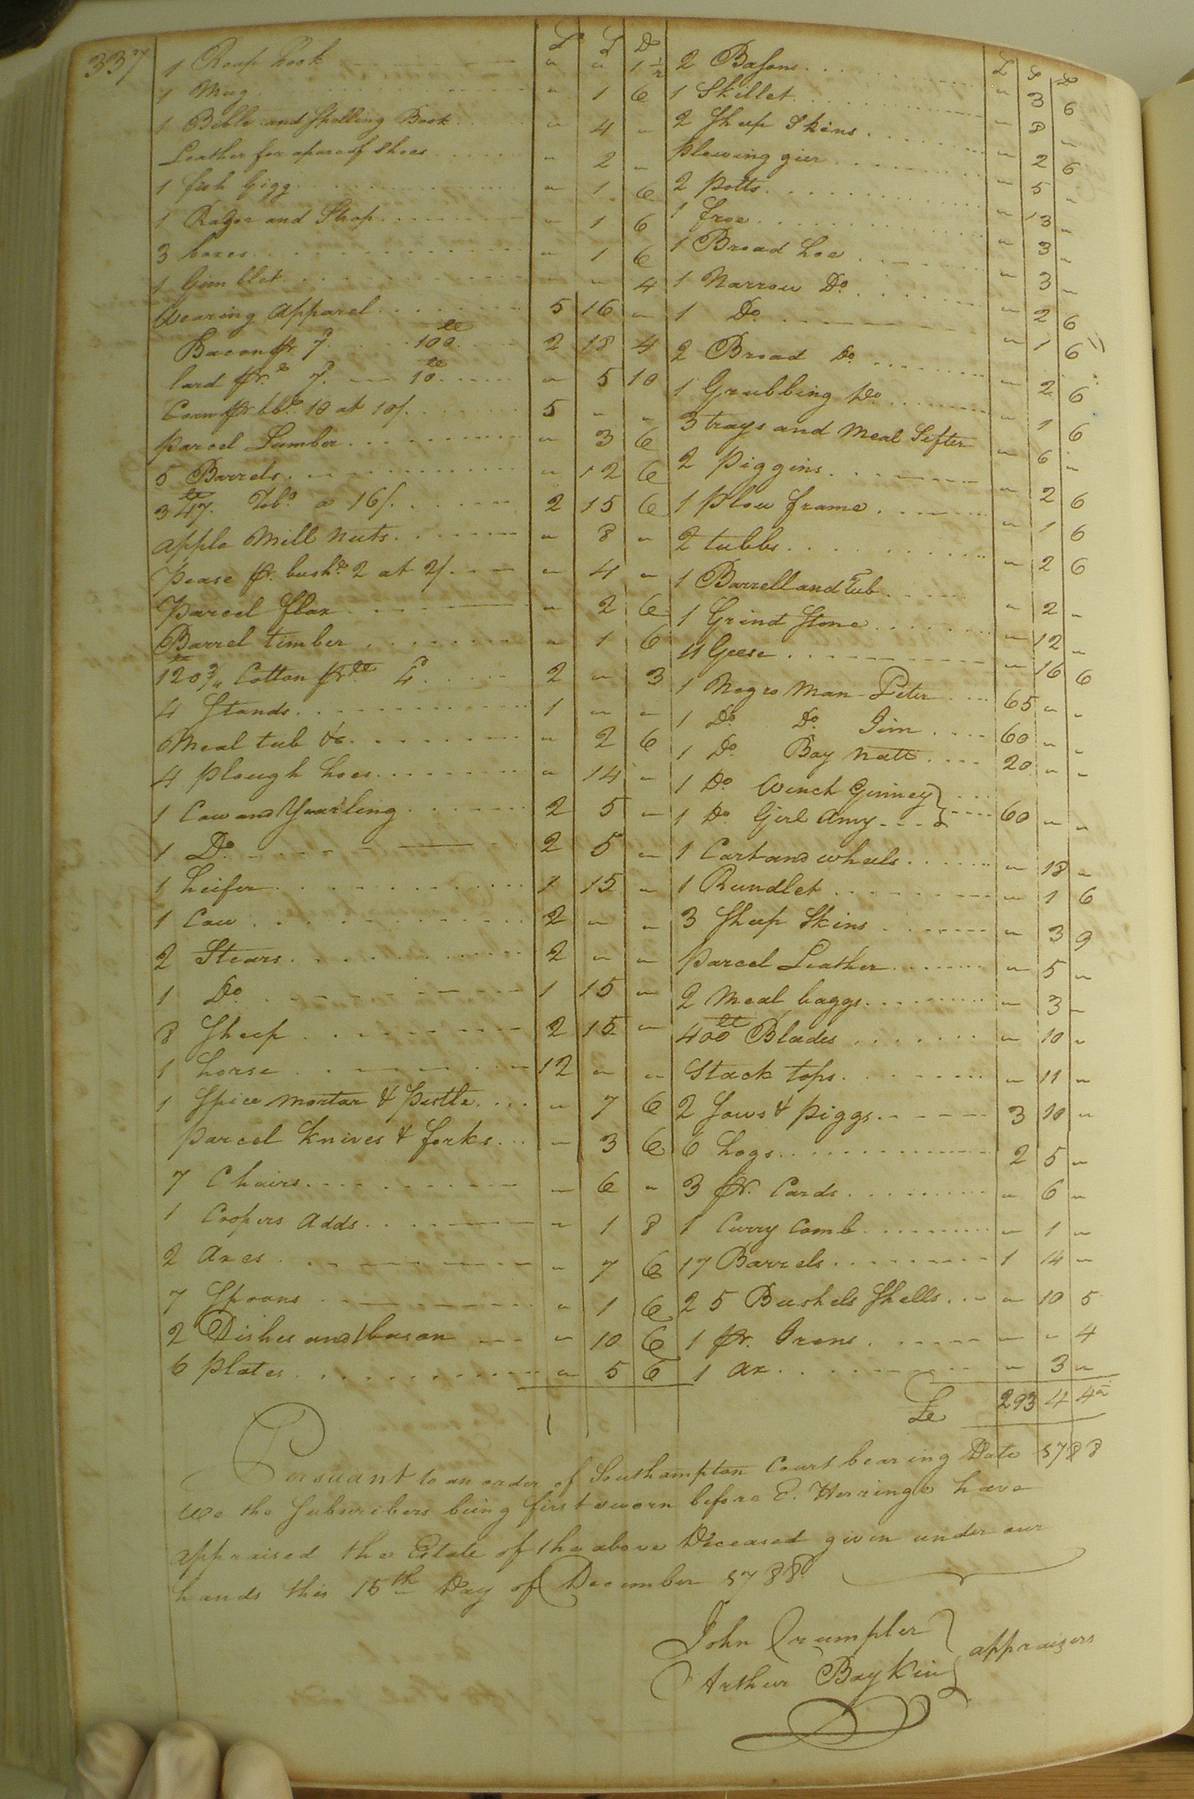 337
£ S D
1 Reap hook " " 1½
1 Mug " 1 6
1 Bible and Spelling Book " 4 "
Leather for a pare of Shoes " 2 "
1 fish Gigg " 1 6
1 Razor and Strop " 1 6
3 boxes " 1 6
1 Gimblet " " 4
Wearing Apparel 5 16 "
Bacon 100 2 18 4
lard 10 " 5 10
Corn 10 at 10/ 5 " "
parcel Lumber " 3 6
5 Barrels " 12 6
347 Tobo a 16/ 2 15 6
apple Mill nuts " 8 "
Pease pr. bushs 2 at 2/ " 4 "
Parcel flax " 2 6
Barrel timber " 1 6
120¾ Cotton 2 " 3
4 Stands 1 " "
Meal tub &c " 2 6
4 plough hoes " 14 "
1 Cow and Yearling 2 5 "
1 Do 2 5 "
1 heifer 1 15 "
1 Cow 2 " "
2 Stears 2 " "
1 Do 1 15 "
8 Sheep 2 15 "
1 horse 12 " "
1 Spice mortar & Pestle " 7 6
parcel knives & forks " 3 6
7 Chairs " 6 "
1 Coopers Adds " 1 8
2 Axes " 7 6
7 Spoons " 1 6
2 Dishes and bason " 10 6
6 plates " 5 6
£ S D
2 Basons " 3 6
1 Skillet " 8 "
2 Sheep Skins " 2 6
plowing gier " 5 "
2 potts " 13 "
1 froe " 3 "
1 Broad hoe " 3 "
1 Narrow Do " 2 6
1 Do " 1 6
2 Broad Do " 2 6
1 Grubbing Do " 1 6
3 trays and Meal Sifter " 6 "
2 Piggins " 2 6
1 plow frame " 1 6
2 tubbs " 2 6
1 Barrell and Tub " 2 "
1 Grind Stone " 12 "
11 Geese " 16 6
1 Negro Man Peter 65 " "
1 Do Do Jim 60 " "
1 Do Boy Natt 20 " "
1 Do Wench Ginney
1 Do Girl Amy 60 " "
1 Cart and wheels " 18 "
1 Rundlet " 1 6
3 Sheep Skins " 3 9
parcel Leather " 5 "
2 Meal baggs " 3 "
400 lt Blades " 10 "
Stack tops " 11 "
2 Sows & piggs 3 10 "
6 hogs 2 5 "
3 pr. Cards " 6 "
1 Curry Comb " 1 "
17 Barrels 1 14 "
25 Bushels Shells " 10 5
1 pr. Irons " " 4
1 Ax " 3 "
£ 293 4 4
Persuant to an order of Southampton Court bearing Date 1788
We the Subscribers being first sworn before E. Herring have
appraised the Estate of the above Deceased given under our
hands this 15th Day of December 1788
John Crumpler
Arthur Boykin
appraisers